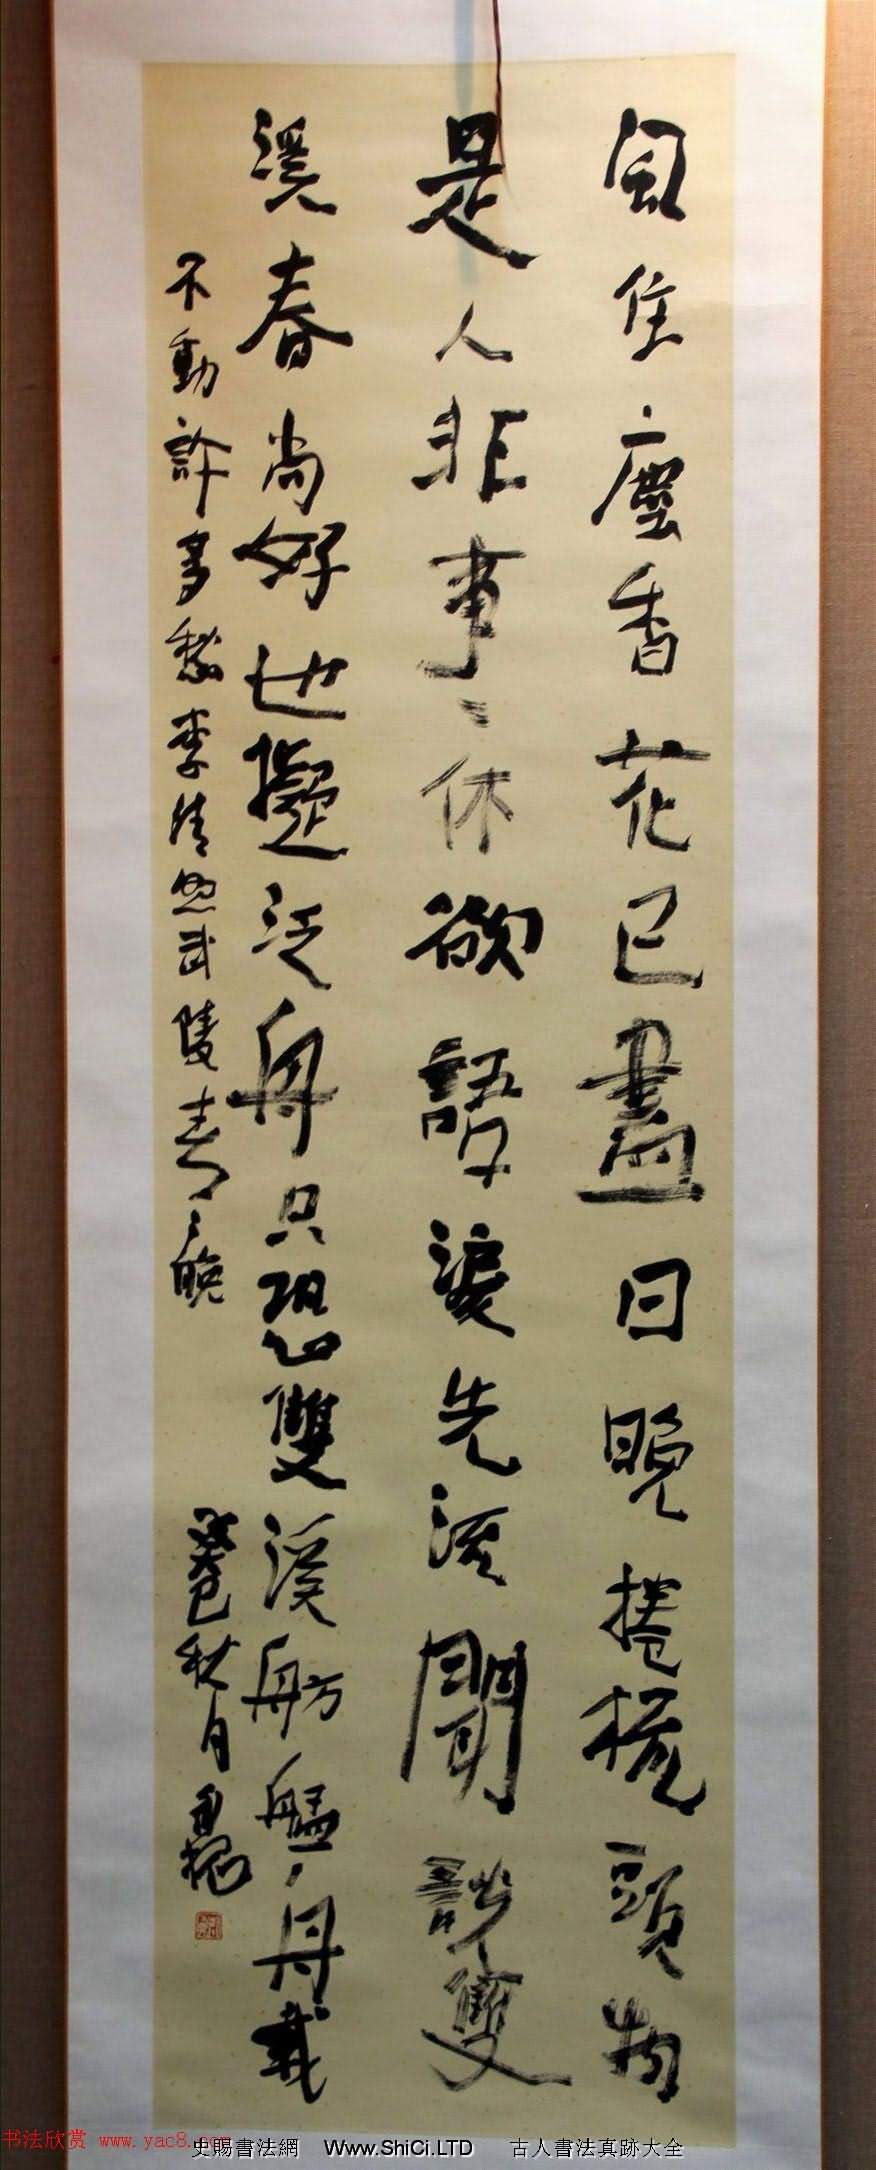 風住塵香花已盡日晚捲梳頭物
是人非事〻休欲語淚先流聞説雙
溪春尚好也擬泛舟只恐雙溪舫艋舟載
不動許多愁李清照武陵春〻晚
癸巳秋月
书法欣赏 www.yac8.
史賜書法網 Www.ShiCi.LTD 古人書法真跡大全